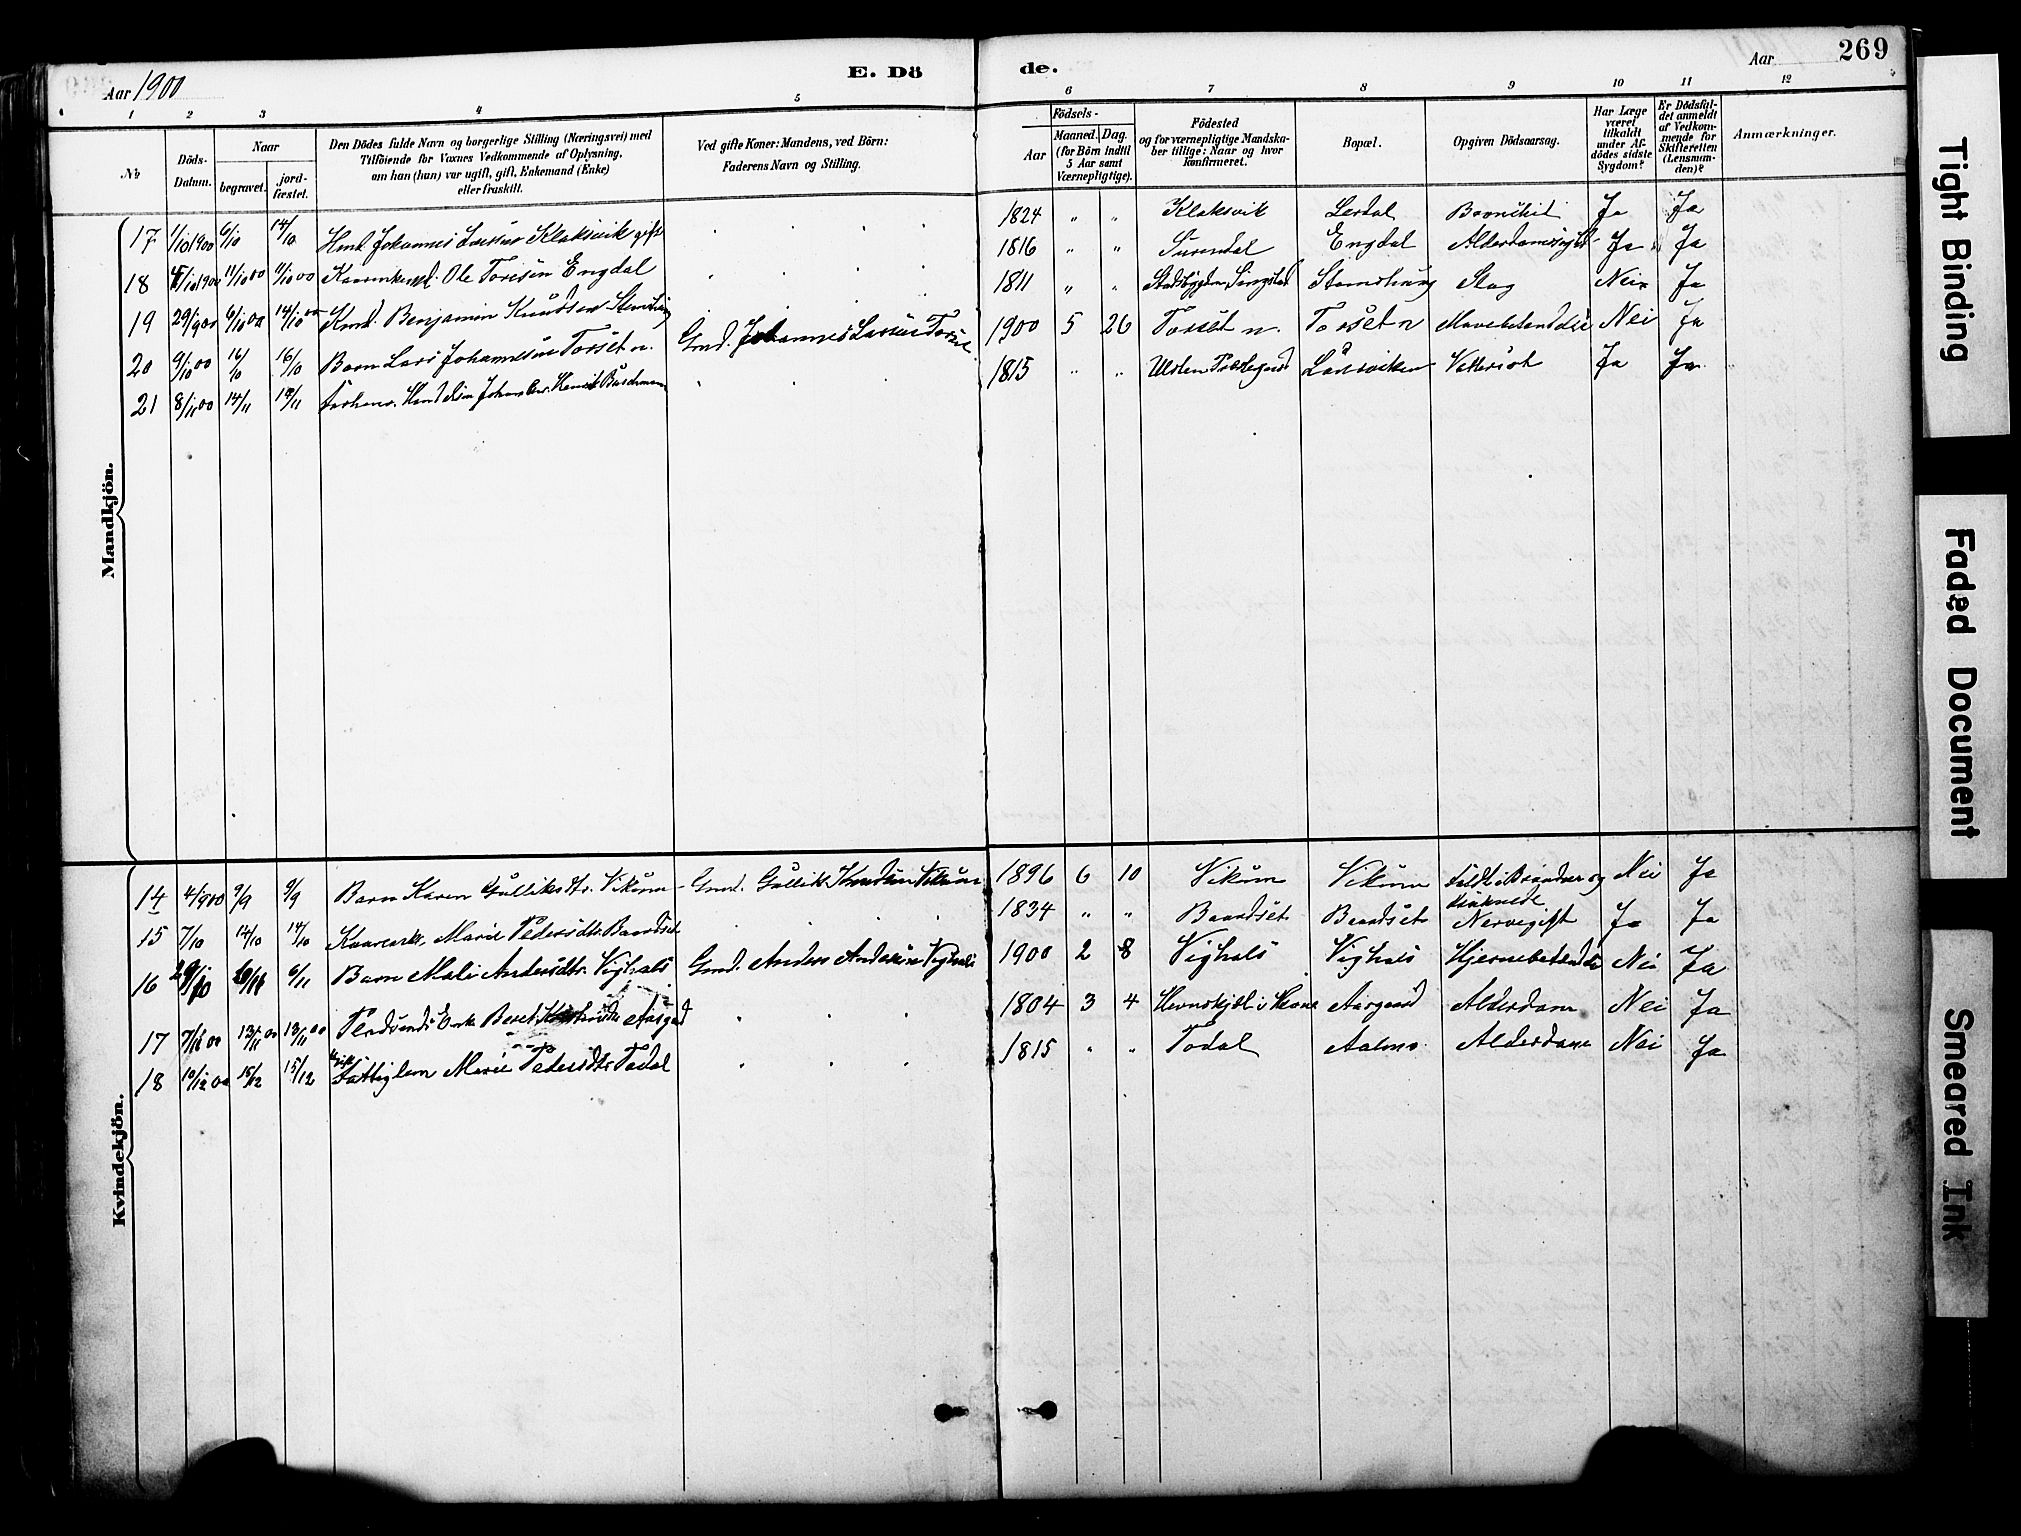 Aar 1900
E. Dö de.
Aar 269
1 2 3 4 5 6 7 8 9 10 11 12
No
Döds-Datum.
Naar
begravet.
jord-fæstet.
Den Dödes fulde Navn og borgerlige Stilling (Næringsvei) med
Tilföiende for Voxnes Vedkommende af Oplysning,
om han (hun) var ugift, gift, Enkemand (Enke)
eller fraskilt.
Ved gifte Koner: Mandens, ved Börn:
Faderens Navn og Stilling.
Födsels-
Aar
Maaned. Dag.
(for Börn indtil
5 Aar samt
Værnepligtige).
Födested
og for værnepligtige Mandska-
ber tillige: Naar og hvor
konfirmeret.
Bopæl.
Opgiven Dödsaarsag.
Har Læge
været
tilkaldt
under Af-
dödes sidste
Sygdom?
Er Dödsfal-
det anmeldt
af Vedkom-
mende for
Skifteretten
(Lensman-
den)?
Anmærkninger.
Mandkjön.
17 1/10 1900 6/10 14/10 Johannes Larsen Klaksvik gift 1824 " " Klaksvik Lerdal Ja Ja
18 11/10 00 11/10 00 Ole Toresen Engdal 1816 " " Surendal Engdal Ja Ja
19 29/9 00 6/10 00 14/10 00 Kmd. Benjamin Knudsen 1811 " " Slag Nei Ja
20 9/10 00 16/10 16/10 Barn Lars Johannesen Torset n. Gmd. Johannes Larsen Torset 1900 5 26 Torset n. Torset n Mavebetændelse Nei Ja
21 8/11 00 14/11 14/11 1815 " " Ja Ja
Kvindekjön.
14 4/9 00 9/9 9/9 Barn Karen Gulliksdtr. Vikum Gmd. Gullik Knudsen Vikum 1896 6 10 Vikum Vikum Faldt i Brønden og druknede Nei Ja
15 7/10 14/10 14/10 Marie Pedersdtr. Baardset 1834 " " Baardset Baardset Nervegift Ja Ja
16 29/10 6/11 Barn Mali Andersdtr. Vighals Gmd. Anders Andersen Vighals 1900 2 8 Vighals Vighals Hjernebetændelse Nei Ja
17 13/11 00 13/11 00 Enke Beret Aasgard 1804 3 4 Aasgaard Alderdom Nei Ja
18 10/12 00 15/12 15/12 ugift Fattiglem Marie Pedersdtr. Todal 1815 " " Todal Aalmo Alderdom Nei Ja
Tight Binding
Faded Document
Smeared Ink